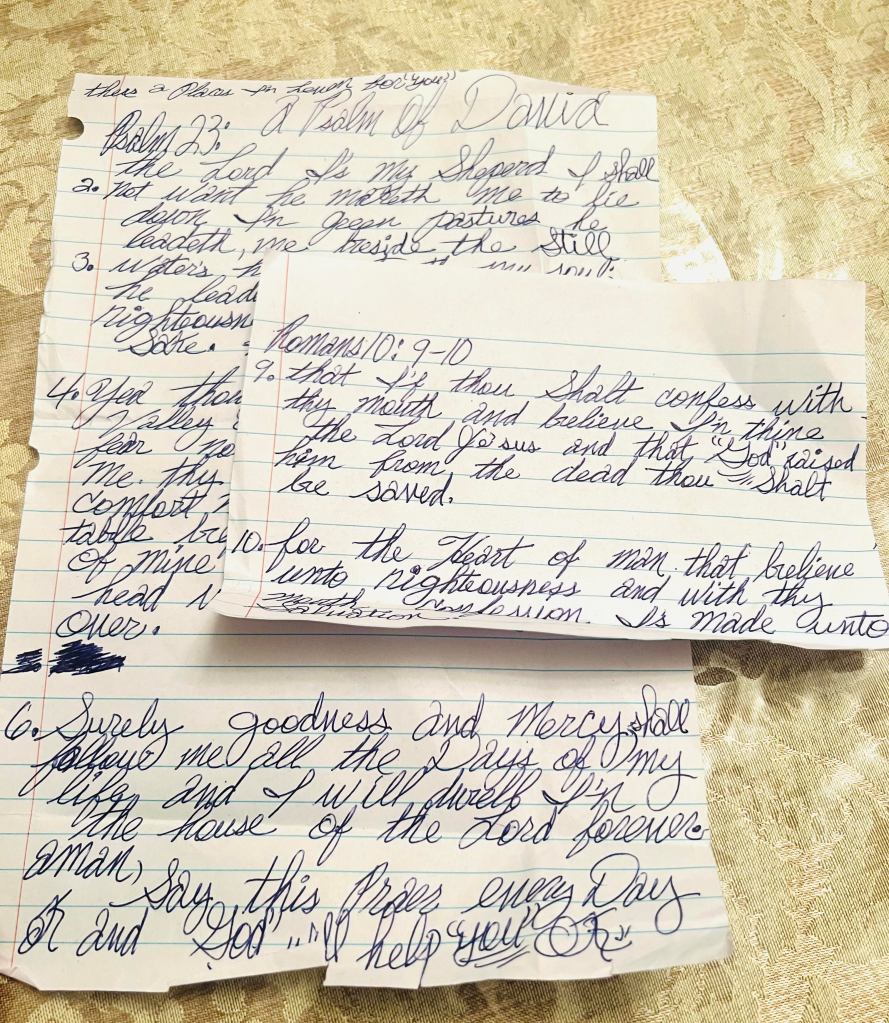 thers a Place In Heaven for "you"
A Psalm Of David
Psalm 23:
the Lord Is my Sheperd I shall
2. not want he maketh me to lie
down In green pastures he
leadeth, me beside the Still
3. Water's h
my soul:
he lead
righteousn
Sake.
4. Yea thou
Valley
fear no
Me. thy
comfort
table be
Of mine
head
Over.
6. Surely goodness and Mercy, shall
follow me all the Days of my
life, and I will dwell I'n
the house of the Lord forever.
aman,
Say this Praer every Day
and "God" "'ll help "you" OK
Romans 10: 9-10
9. that I'f thou Shalt confess with
thy mouth and believe I'n thine
the Lord Jesus and that "God" raised
him from the dead thou Shalt
be saved.
10. for the Heart of man that believe
unto righteousness and with thy
mouth confession. Is made unto
salvation